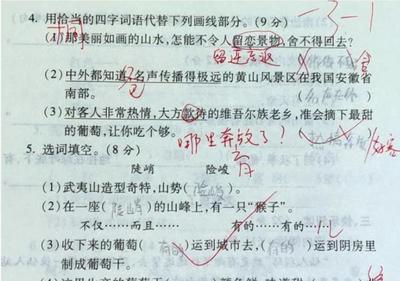 4. 用恰当的四字词语代替下列画线部分。(9 分)
-3-1
(1) 那美丽如画的山水,怎能不令人留恋景物,舍不得回去?
留连忘返
(2) 中外都知道,名声传播得极远的黄山风景区在我国安徽省
南部。
(3) 对客人非常热情,大方款待的维吾尔族老乡,准会摘下最甜
的葡萄,让你吃个够。
哪里奔放了?
好客
5. 选词填空。(8 分)
陡峭 险峻
(1) 武夷山造型奇特,山势(险峻)。
(2) 在一座(陡峭)的山峰上,有一只“猴子”。
不仅……而且…… 有的……有的……
(3) 收下来的葡萄(有的)运到城市去,(有的)运到阴房里
制成葡萄干。